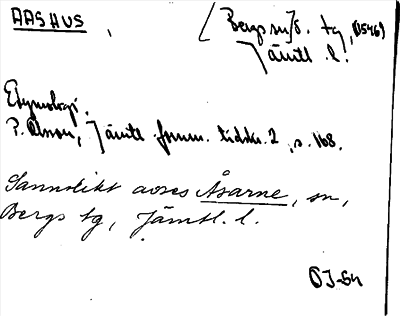 AASHUS, [Bergs sn]o. tg, (1546)
Jämtl. l.
Etymologi.
P. Olsson, Jämtl. fornm. tidskr. 2, s. 168.
Sannolikt avses Åsarne, sn,
Bergs tg, Jämtl. l.
OJ-64